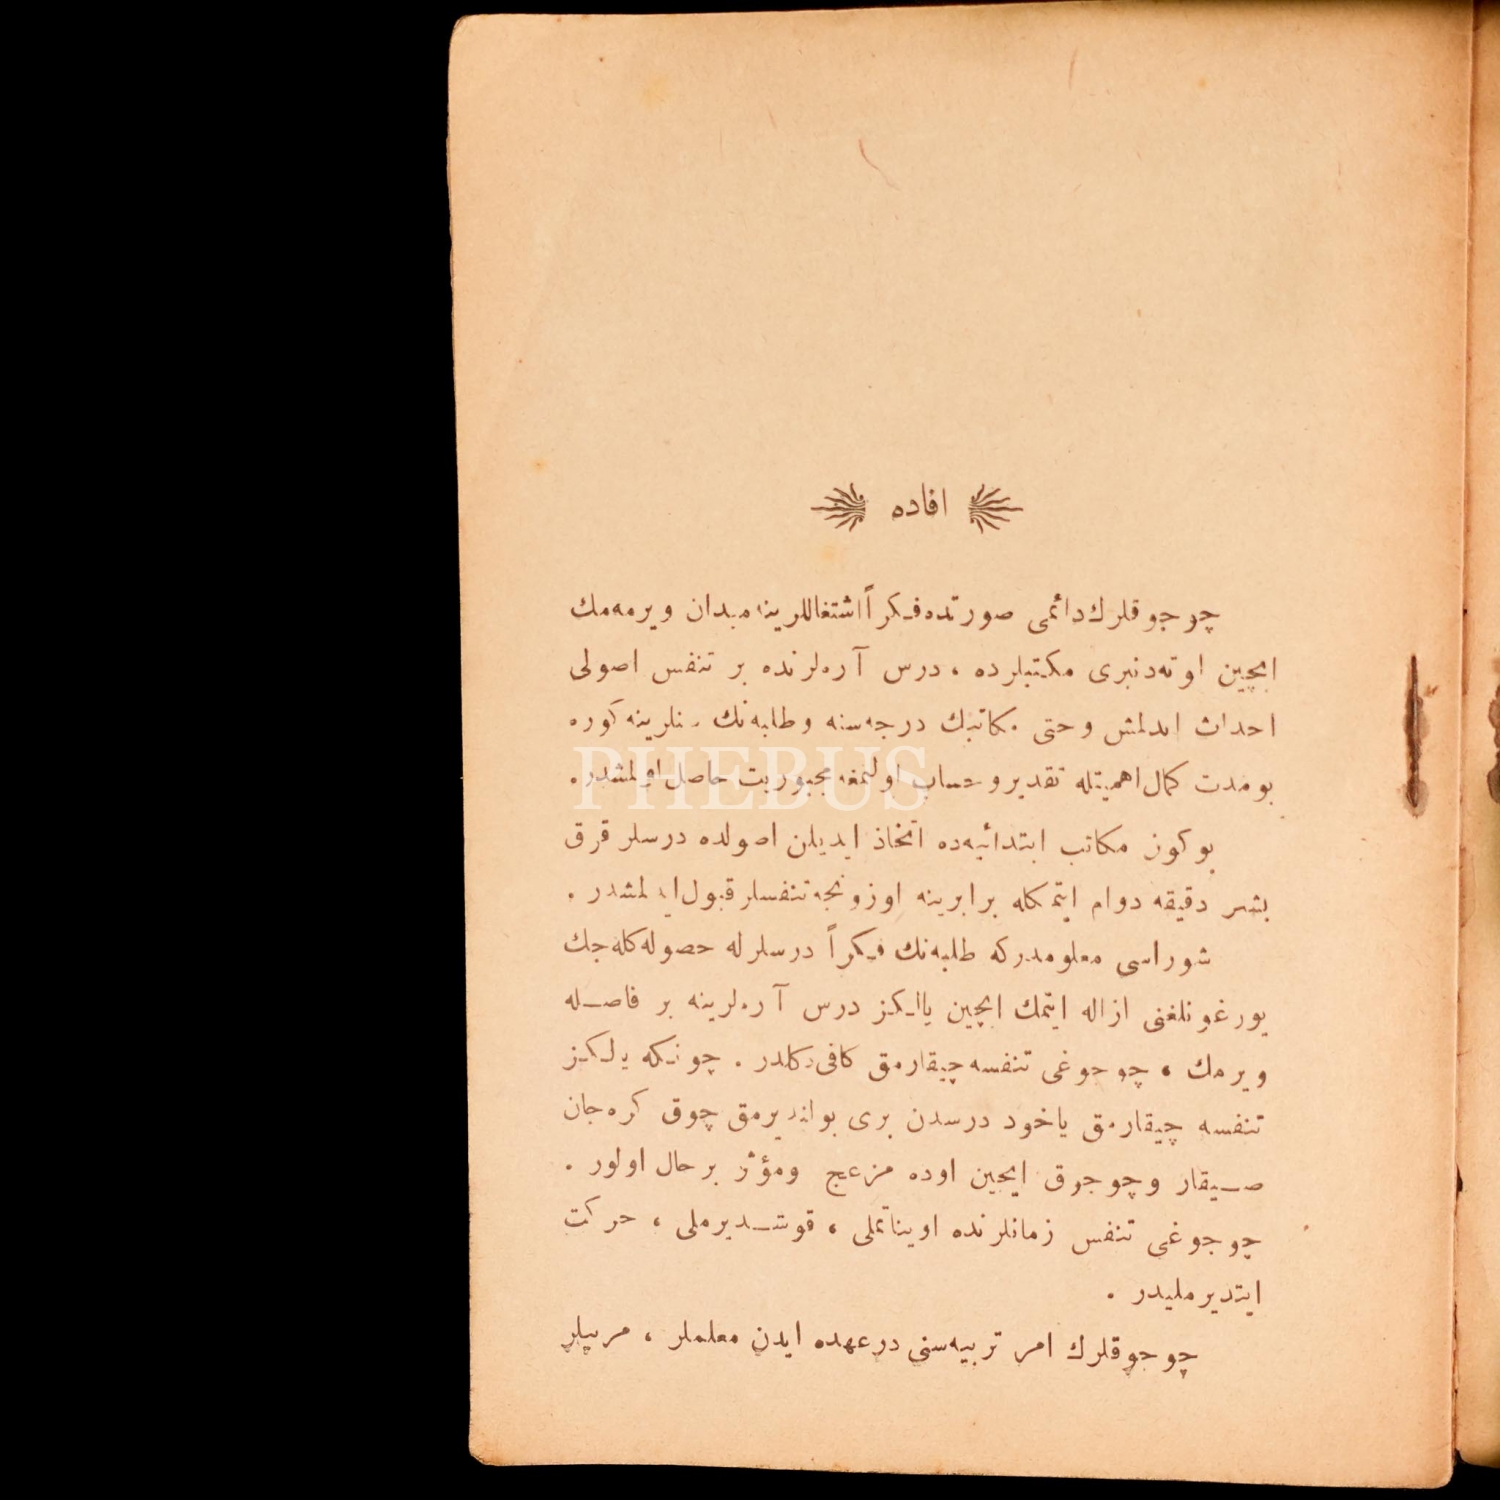 افاده
چوجوقلرك دائمی صورتده فكراً اشتغاللرینه میدان ویرمه‌مك
ایچین اوته‌دنبری مكتبلرده ، درس آره‌لرنده بر تنفس اصولی
احداث ایدلمش وحتی مكاتبك درجه‌سنه وطلبه‌نك سنلرینه كوره
بومدت كمال اهمیتله تقدیر وحساب اولنمغه مجبوریت حاصل اولمشدر .
بوكون مكاتب ابتدائیه‌ده اتخاذ ایدیلن اصولده درسلر قرق
بشر دقیقه دوام ایتمكله برابرینه اوزونجه تنفسلر قبول ایدلمشدر .
شوراسی معلومدركه طلبه‌نك فكراً درسلرله حصوله كله‌جك
یورغونلغنی ازاله ایتمك ایچین یالكز درس آره‌لرینه بر فاصله
ویرمك ، چوجوغی تنفسه چیقارمق كافی دكلدر . چونكه یالكز
تنفسه چیقارمق یاخود درسدن بری بولندیرمق چوق كره جان
صیقار وچوجوق ایچین اوده مزعج ومؤثر برحال اولور .
چوجوغی تنفس زمانلرنده اویناتملی ، قوشدیرملی ، حركت
ایتدیرملیدر .
چوجوقلرك امر تربیه‌سنی درعهده ایدن معلملر ، مربیلر
PHEBUS